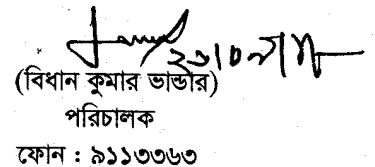 (বিধান কুমার ভান্ডার)
পরিচালক
ফোন : ৯১১৩৩৬৩